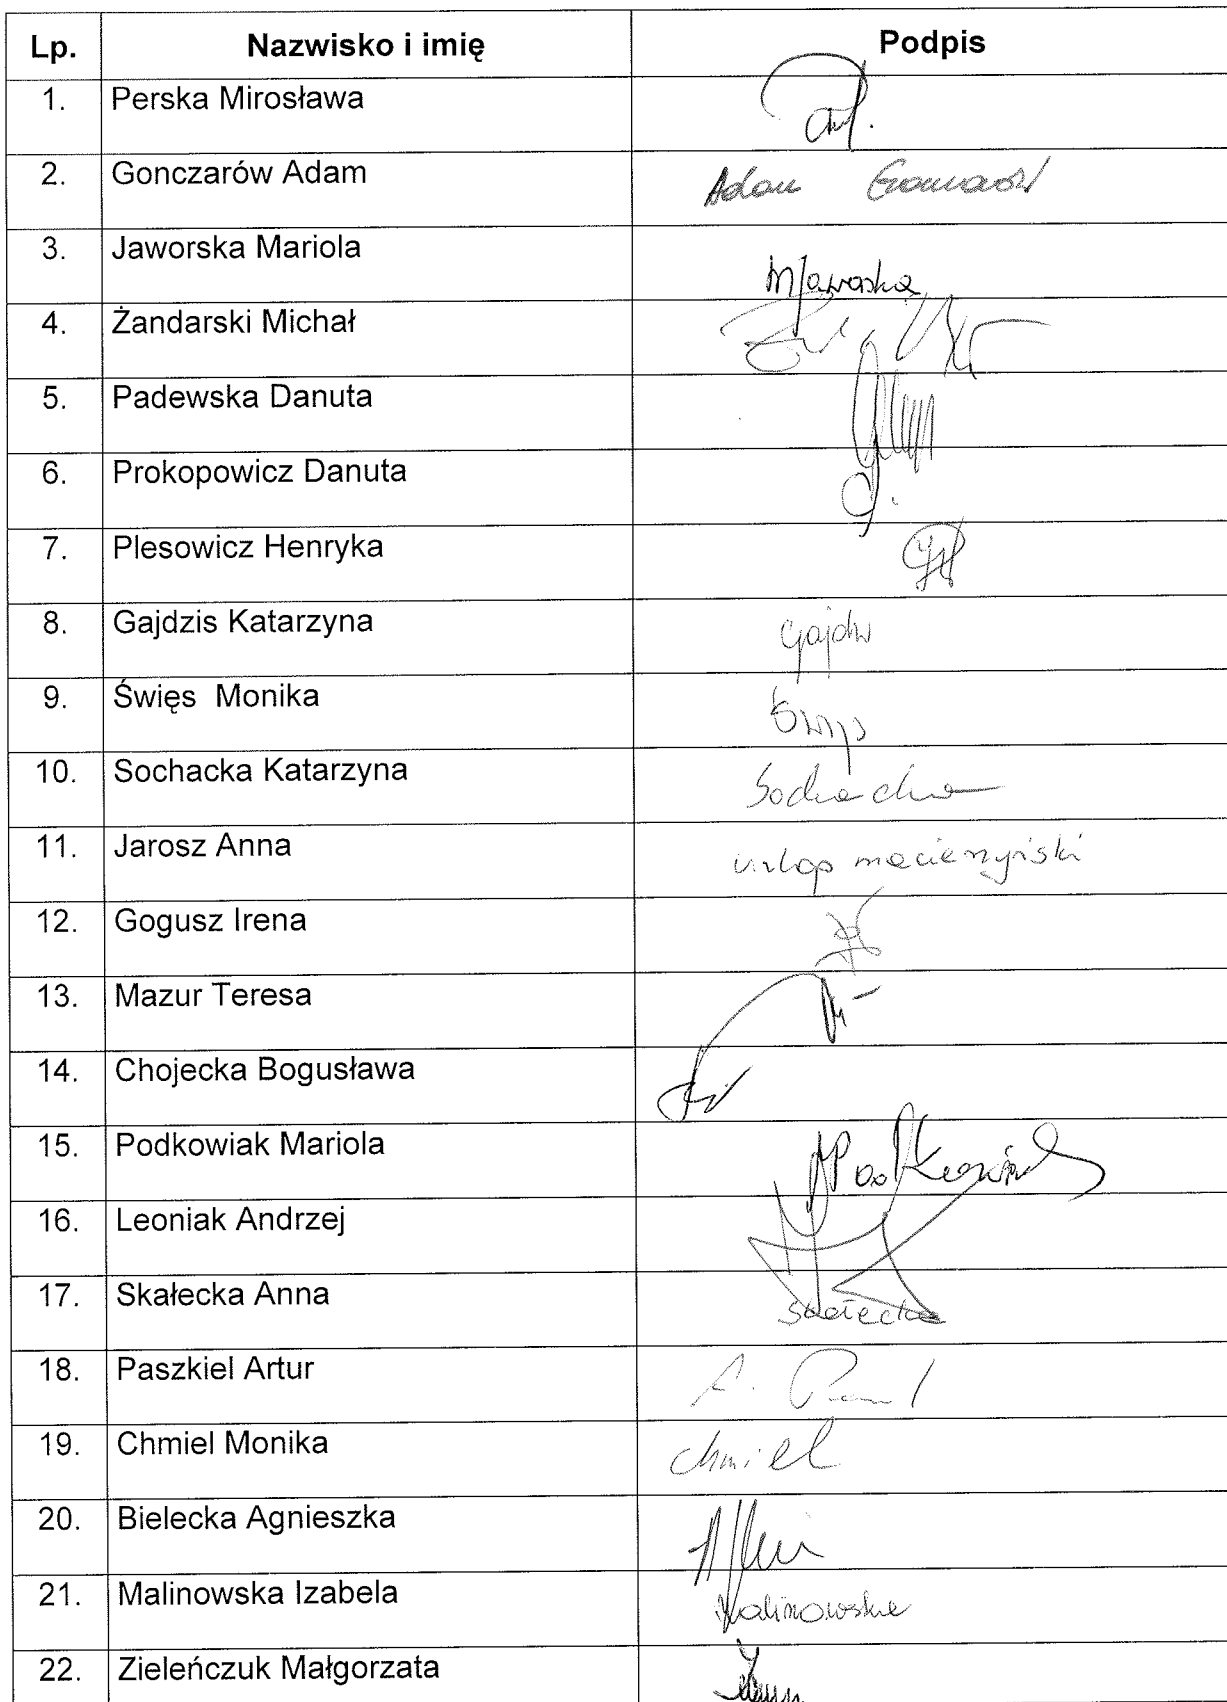 Lp. Nazwisko i imię Podpis
1. Perska Mirosława
2. Gonczarów Adam Adam
3. Jaworska Mariola MJaworska
4. Żandarski Michał
5. Padewska Danuta
6. Prokopowicz Danuta
7. Plesowicz Henryka
8. Gajdzis Katarzyna
9. Święs Monika Święs
10. Sochacka Katarzyna Sochacka
11. Jarosz Anna urlop macierzyński
12. Gogusz Irena
13. Mazur Teresa
14. Chojecka Bogusława
15. Podkowiak Mariola MPodkowiak
16. Leoniak Andrzej
17. Skałecka Anna Skałecka
18. Paszkiel Artur
19. Chmiel Monika Chmiel
20. Bielecka Agnieszka
21. Malinowska Izabela Malinowska
22. Zieleńczuk Małgorzata